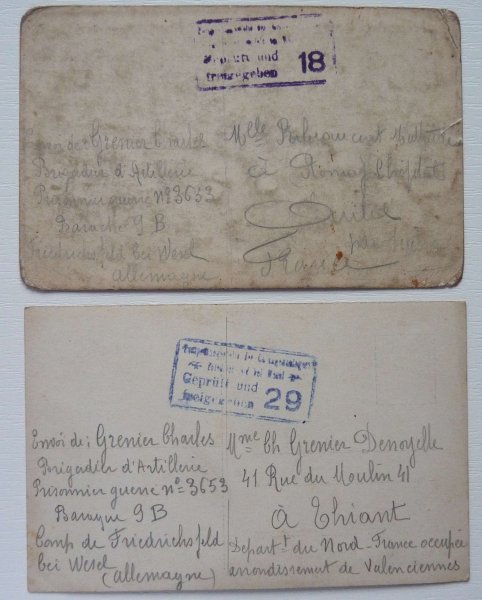 Geprüft und
freigegeben 18
Envoi de: Grenier Charles
Brigadier d'Artillerie
Prisonnier guerre nº 3653
Baraque 9 B
Friedrichsfeld bei Wesel
allemagne
Melle
à
France
Geprüft und
freigegeben 29
Envoi de: Grenier Charles
Brigadier d'Artillerie
Prisonnier guerre nº 3653
Baraque 9 B
Camp de Friedrichsfeld
bei Wesel
(allemagne)
Mme Ch Grenier Denoyelle
41 Rue du Moulin 41
à Thiant
Depart.t du Nord. France occupée
arrondissement de Valenciennes